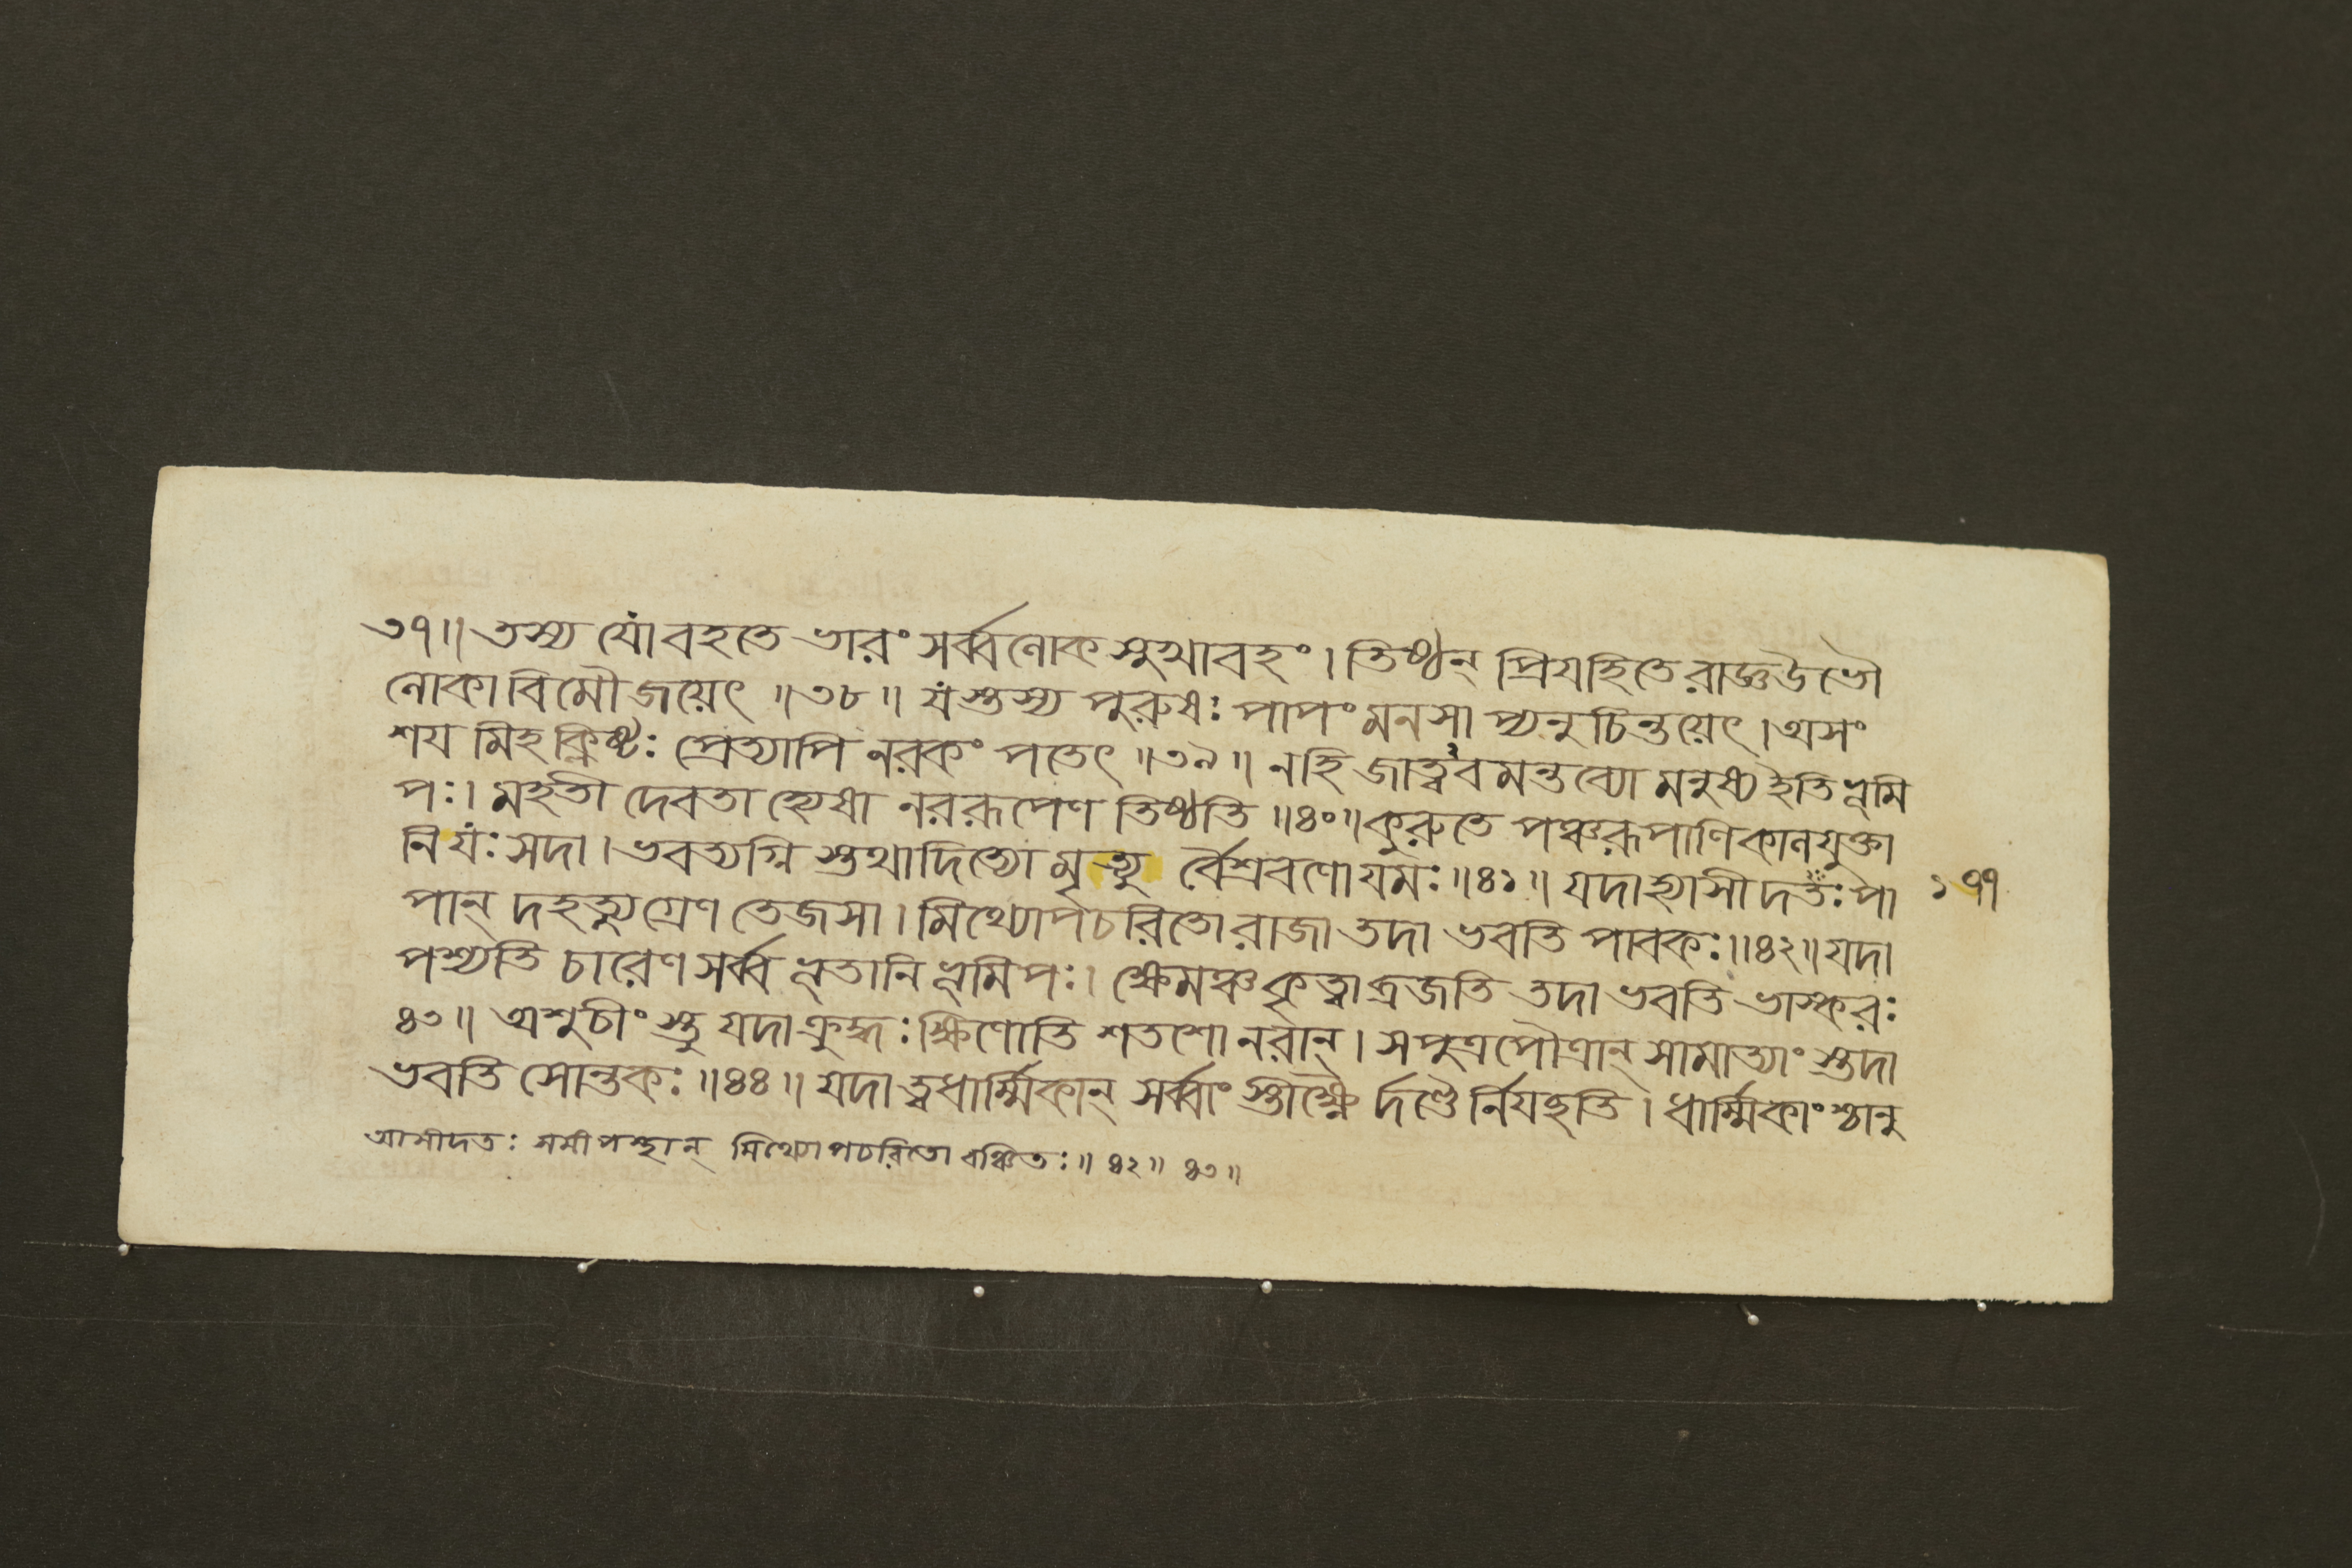 ৩৭॥ তস্য যো বহতে ভারং সর্ব্বলোক সুখাবহং। তিষ্ঠন্ প্রিয়হিতে রাজ্ঞ উভৌ
লোকাবিমৌ জয়েৎ ॥৩৮॥ যস্তস্য পুরুষঃ পাপং মনসা প্যনুচিন্তয়েৎ। অসং
শয় মিহ ক্লিষ্টঃ প্রেত্যাপি নরকং পতেৎ ॥৩৯॥ নহি জাত্ববমন্তব্যো মনুষ্য ইতি ভূমি
পঃ। মহতী দেবতা হ্যেষা নররূপেণ তিষ্ঠতি ॥৪০॥ কুরুতে পঞ্চরূপাণি কালযুক্তা
নি যঃ সদা। ভবত্যগ্নি স্তথাদিত্যো মৃত্যু র্বৈশ্রবণো যমঃ ॥৪১॥ যদা হ্যাসীদতঃ পা ১৭৭
পান্ দহত্যুগ্রেণ তেজসা। মিথ্যোপচরিতো রাজা তদা ভবতি পাবকঃ ॥৪২॥ যদা
পশ্যতি চারেণ সর্ব্ব ভূতানি ভূমিপঃ। ক্ষেমঞ্চ কৃত্বা ব্রজতি তদা ভবতি ভাস্করঃ
৪৩॥ অশুচীং স্তু যদা ক্রুদ্ধঃ ক্ষিণোতি শতশো নরান্। সপুত্রপৌত্রান্ সামাত্যাং স্তদা
ভবতি সোন্তকঃ ॥৪৪॥ যদা ত্বধার্ম্মিকান্ সর্ব্বাং স্তীক্ষ্ণৈ র্দণ্ডৈ র্নিযচ্ছতি। ধার্ম্মিকাংশ্চানু
আসীদতঃ সমীপস্থান্ মিথ্যোপচরিতো বঞ্চিতঃ ॥ ৪২॥ ৪৩॥